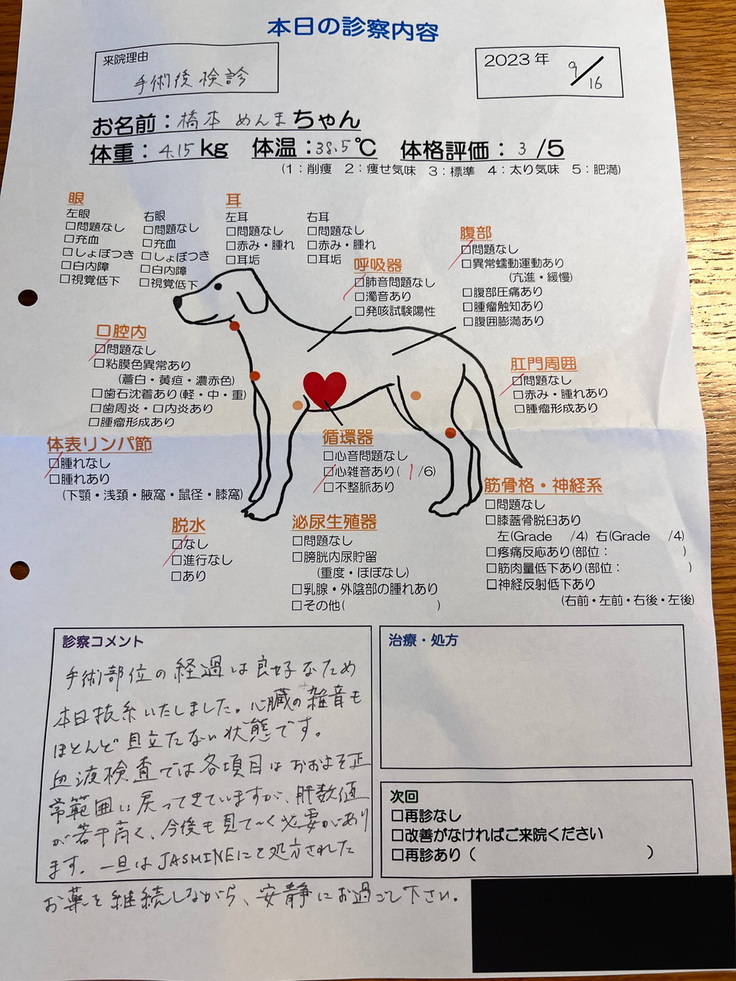 本日の診察内容
来院理由
手術後 検診
2023年 9/16
お名前：橋本 めんまちゃん
体重：4.15kg 体温：38.5℃ 体格評価：3/5
（1：削痩 2：痩せ気味 3：標準 4：太り気味 5：肥満）
眼
左眼
□問題なし
□充血
□しょぼつき
□白内障
□視覚低下
右眼
□問題なし
□充血
□しょぼつき
□白内障
□視覚低下
耳
左耳
□問題なし
□赤み・腫れ
□耳垢
右耳
□問題なし
□赤み・腫れ
□耳垢
呼吸器
□肺音問題なし
□濁音あり
□発咳試験陽性
腹部
□問題なし
□異常蠕動運動あり
（亢進・緩慢）
□腹部圧痛あり
□腫瘤触知あり
□腹囲膨満あり
口腔内
□問題なし
□粘膜色異常あり
（蒼白・黄疸・濃赤色）
□歯石沈着あり（軽・中・重）
□歯周炎・口内炎あり
□腫瘤形成あり
肛門周囲
□問題なし
□赤み・腫れあり
□腫瘤形成あり
体表リンパ節
□腫れなし
□腫れあり
（下顎・浅頚・腋窩・鼠径・膝窩）
循環器
□心音問題なし
□心雑音あり（1/6）
□不整脈あり
筋骨格・神経系
□問題なし
□膝蓋骨脱臼あり
左（Grade /4） 右（Grade /4）
□疼痛反応あり（部位： ）
□筋肉量低下あり（部位： ）
□神経反射低下あり
（右前・左前・右後・左後）
脱水
□なし
□進行なし
□あり
泌尿生殖器
□問題なし
□膀胱内尿貯留
（重度・ほぼなし）
□乳腺・外陰部の腫れあり
□その他（ ）
診察コメント
手術部位の経過は良好なため
本日抜糸いたしました。心臓の雑音も
ほとんど目立たない状態です。
血液検査では各項目はおおよそ正
常範囲に戻ってきていますが、肝数値
が若干高く、今後も見ていく必要があり
ます。一旦はJASMINEにて処方された
お薬を継続しながら、安静にお過ごし下さい。
治療・処方
次回
□再診なし
□改善がなければご来院ください
□再診あり（ ）